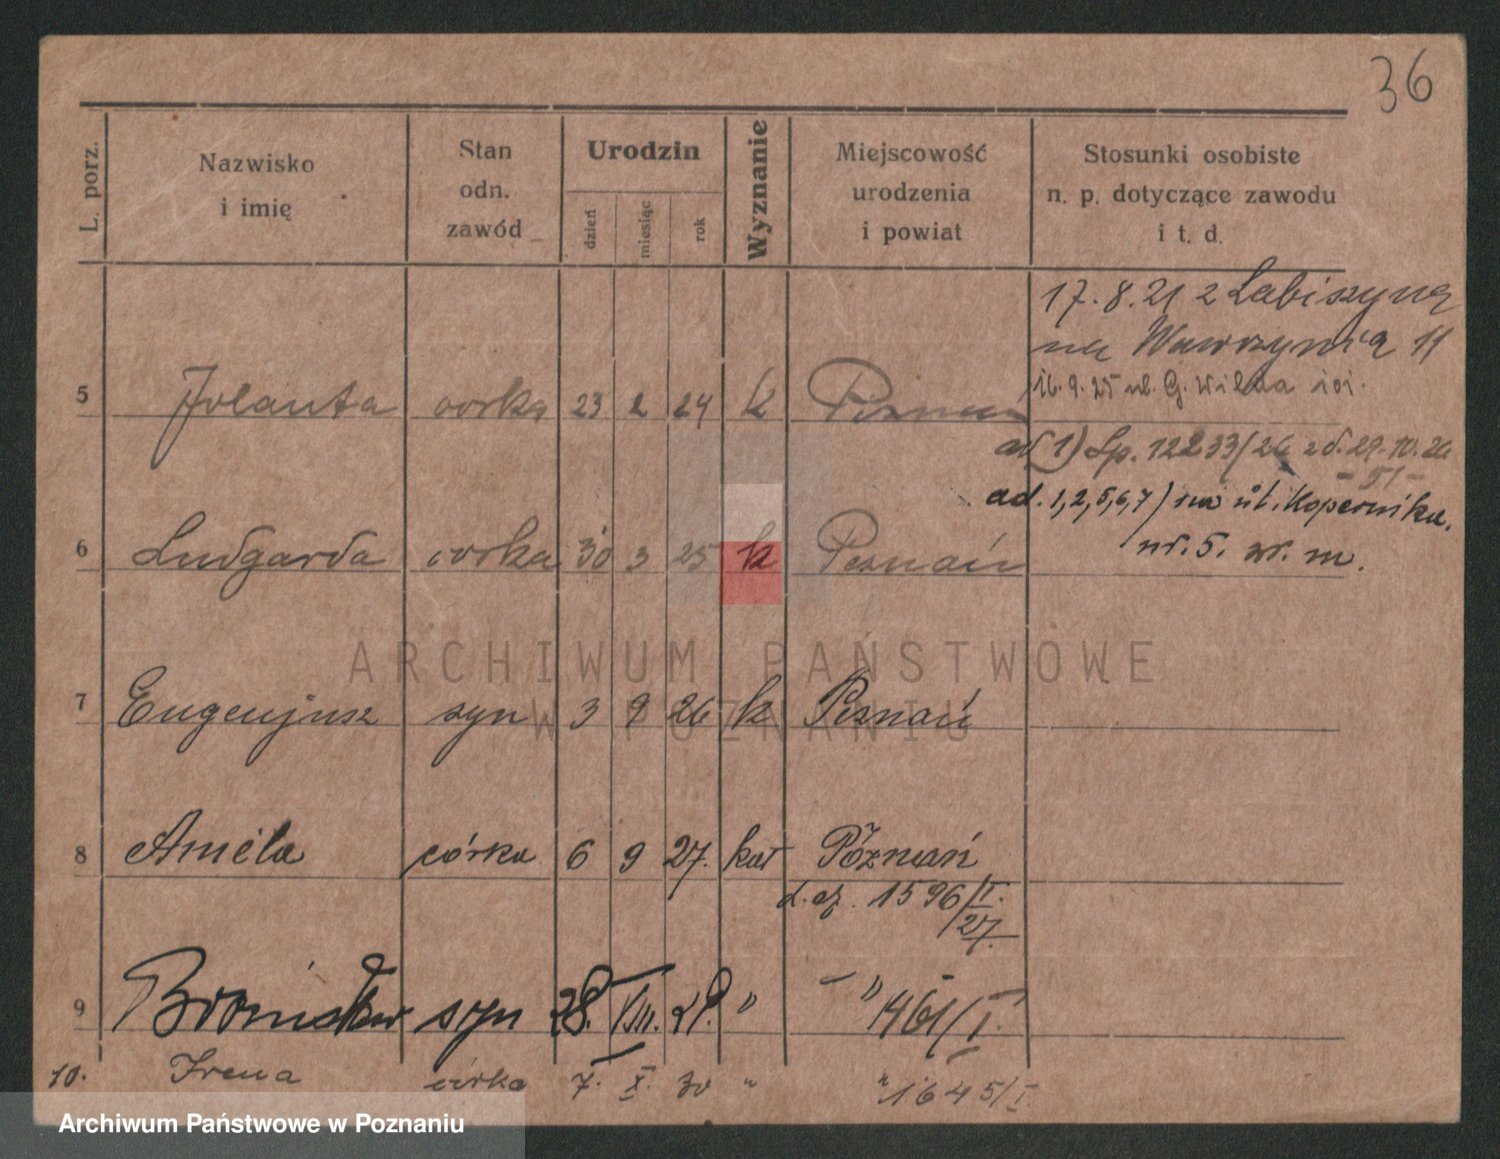 36
L. porz.
Nazwisko
i imię
Stan
odn.
zawód
Urodzin
dzień
miesiąc
rok
Wyznanie
Miejscowość
urodzenia
i powiat
Stosunki osobiste
n. p. dotyczące zawodu
i t. d.
17.8.21 z Łabiszyna
na Wawrzynia 11
16.9.25 ul. G. Wilda
5 Jolanta córka 23 2 24 k Poznań
ad 1) Sp. 12233/26 z d. 27.10.26
- 51 -
ad. 1,2,5,6,7) na ul. Kopernika
nr. 5. m.
6 Ludgarda córka 30 3 25 k Poznań
ARCHIWUM PAŃSTWOWE
W POZNANIU
7 Eugenjusz syn 3 9 26 k Poznań
8 Amela córka 6 9 27. kat Poznań
1596/I.
27.
9 Bronisław syn 28. VIII. 29. " - " 1461/I.
10. Irena córka 7. X. 30 " " 1645/I
Archiwum Państwowe w Poznaniu